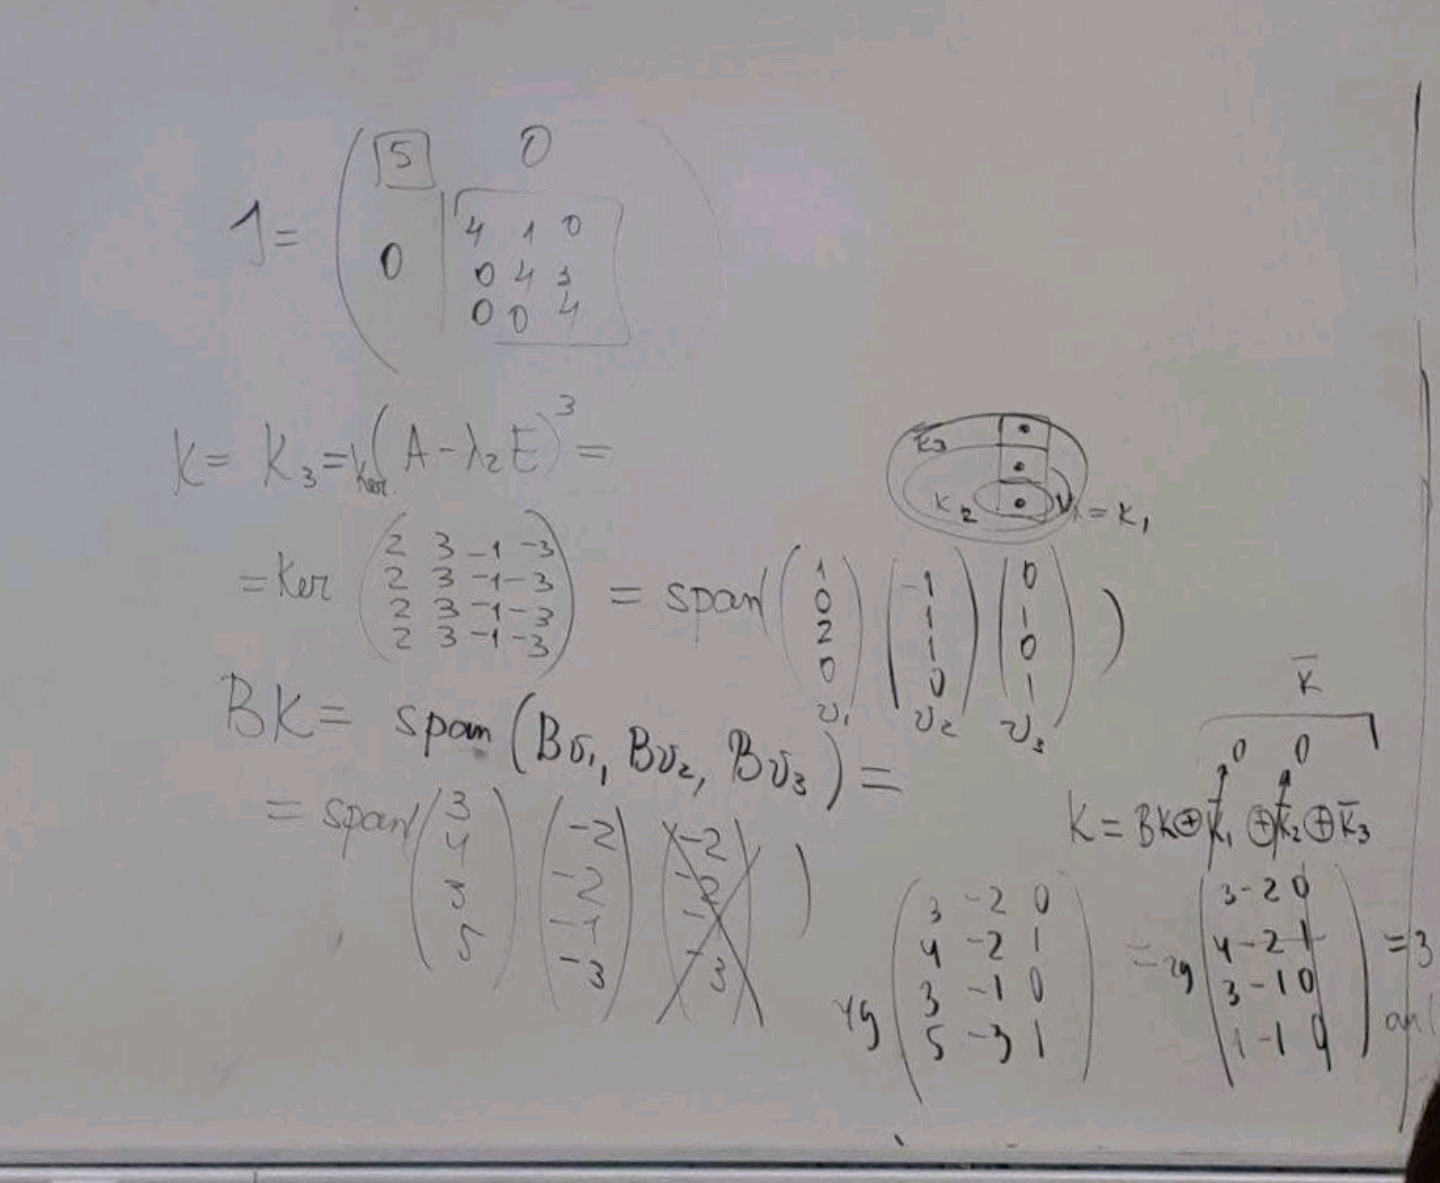 J = ( 5 0
4 1 0
0 0 4 3
0 0 4 )
K = K₃ = ker (A - λ₂E)³ =
K₃
K₂ = K₁
= Ker ( 2 3 -1 -3
2 3 -1 -3
2 3 -1 -3
2 3 -1 -3 )
= span ( ( 1 0 2 0 ) ( -1 1 1 0 ) ( 0 1 0 1 ) )
v₁ v₂ v₃
BK = span (Bv₁, Bv₂, Bv₃) =
= span ( ( 3 4 3 5 ) ( -2 -2 -1 -3 ) ( -2 -2 -3 ) )
K̄
0 0
K = BK ⊕ K̄₁ ⊕ K̄₂ ⊕ K̄₃
rg ( 3 -2 0
4 -2 1
3 -1 0
5 -3 1 )
= rg ( 3 -2 0
4 -2 1
3 -1 0
1 -1 0 ) = 3